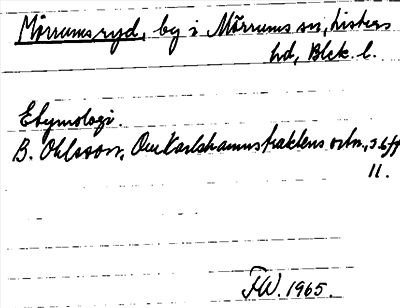 Mörrumsryd, by i Mörrums sn, Listers
hd, Blek. l.
Etymologi.
B. Ohlsson, Om Karlshamnstraktens ortn., s. 6 ff
11.
F.W. 1965.